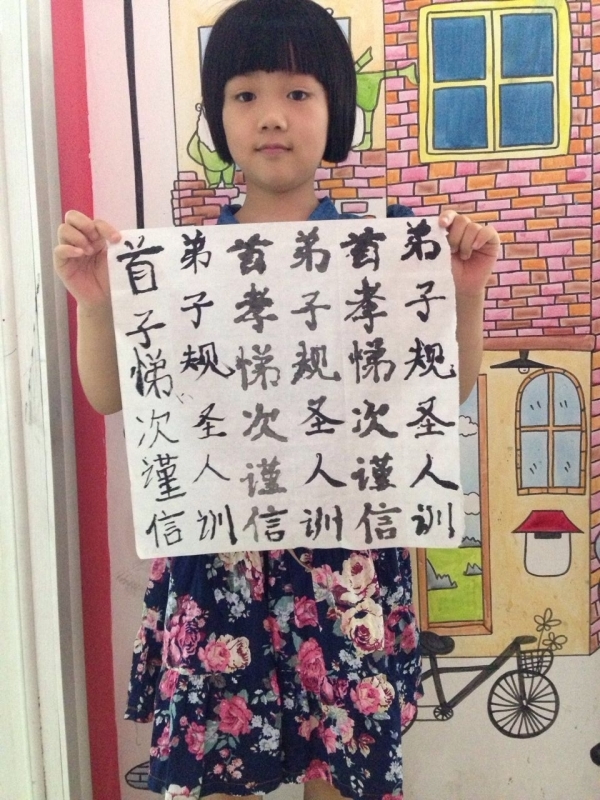 弟子规圣人训
首孝悌次谨信
弟子规圣人训
首孝悌次谨信
弟子规圣人训
首子悌次谨信